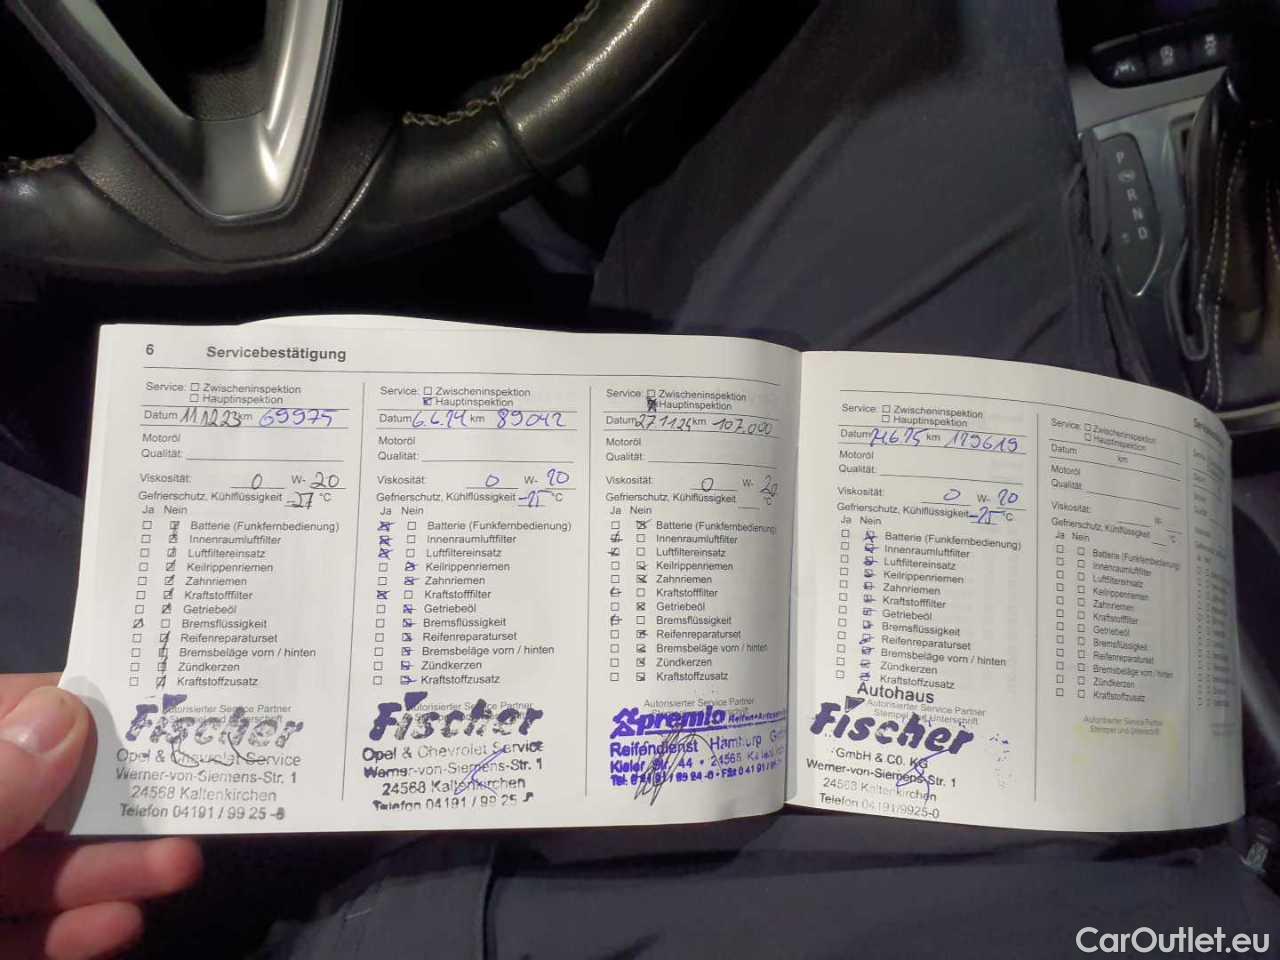 6 Servicebestätigung
Service: Zwischeninspektion
Hauptinspektion
Datum 11.12.23 km 69975
Motoröl
Qualität:
Viskosität: 0 W- 20
Gefrierschutz, Kühlflüssigkeit -27 °C
Ja Nein
Batterie (Funkfernbedienung)
Innenraumluftfilter
Luftfiltereinsatz
Keilrippenriemen
Zahnriemen
Kraftstofffilter
Getriebeöl
Bremsflüssigkeit
Reifenreparaturset
Bremsbeläge vorn / hinten
Zündkerzen
Kraftstoffzusatz
Autorisierter Service Partner
Stempel und Unterschrift
Fischer
Opel & Chevrolet Service
Werner-von-Siemens-Str. 1
24568 Kaltenkirchen
Telefon 04191 / 99 25 -
Service: Zwischeninspektion
Hauptinspektion
Datum 6.6.24 km 89042
Motoröl
Qualität:
Viskosität: 0 W- 20
Gefrierschutz, Kühlflüssigkeit -25 °C
Ja Nein
Batterie (Funkfernbedienung)
Innenraumluftfilter
Luftfiltereinsatz
Keilrippenriemen
Zahnriemen
Kraftstofffilter
Getriebeöl
Bremsflüssigkeit
Reifenreparaturset
Bremsbeläge vorn / hinten
Zündkerzen
Kraftstoffzusatz
Autorisierter Service Partner
Fischer
Opel & Chevrolet Service
Werner-von-Siemens-Str. 1
24568 Kaltenkirchen
Telefon 04191 / 99 25
Service: Zwischeninspektion
Hauptinspektion
Datum 27.11.24 km 107.000
Motoröl
Qualität:
Viskosität: 0 W- 20
Gefrierschutz, Kühlflüssigkeit °C
Ja Nein
Batterie (Funkfernbedienung)
Innenraumluftfilter
Luftfiltereinsatz
Keilrippenriemen
Zahnriemen
Kraftstofffilter
Getriebeöl
Bremsflüssigkeit
Reifenreparaturset
Bremsbeläge vorn / hinten
Zündkerzen
Kraftstoffzusatz
Autorisierter Service Partner
premio Reifen+Autoservice
Reifendienst Hamburg
Kieler Str. 44 • 24568
Service: Zwischeninspektion
Hauptinspektion
Datum km 129619
Motoröl
Qualität:
Viskosität: 0 W- 20
Gefrierschutz, Kühlflüssigkeit -25 °C
Ja Nein
Batterie (Funkfernbedienung)
Innenraumluftfilter
Luftfiltereinsatz
Keilrippenriemen
Zahnriemen
Kraftstofffilter
Getriebeöl
Bremsflüssigkeit
Reifenreparaturset
Bremsbeläge vorn / hinten
Zündkerzen
Kraftstoffzusatz
Autorisierter Service Partner
Stempel und Unterschrift
Autohaus
Fischer
GmbH & CO. KG
Werner-von-Siemens-Str. 1
24568 Kaltenkirchen
Telefon 04191/9925-0
Service: Zwischeninspektion
Hauptinspektion
Datum km
Motoröl
Qualität:
Viskosität: W-
Gefrierschutz, Kühlflüssigkeit °C
Ja Nein
Batterie (Funkfernbedienung)
Innenraumluftfilter
Luftfiltereinsatz
Keilrippenriemen
Zahnriemen
Kraftstofffilter
Getriebeöl
Bremsflüssigkeit
Reifenreparaturset
Bremsbeläge vorn / hinten
Zündkerzen
Kraftstoffzusatz
Autorisierter Service Partner
Stempel und Unterschrift
P
R
N
D
CarOutlet.eu